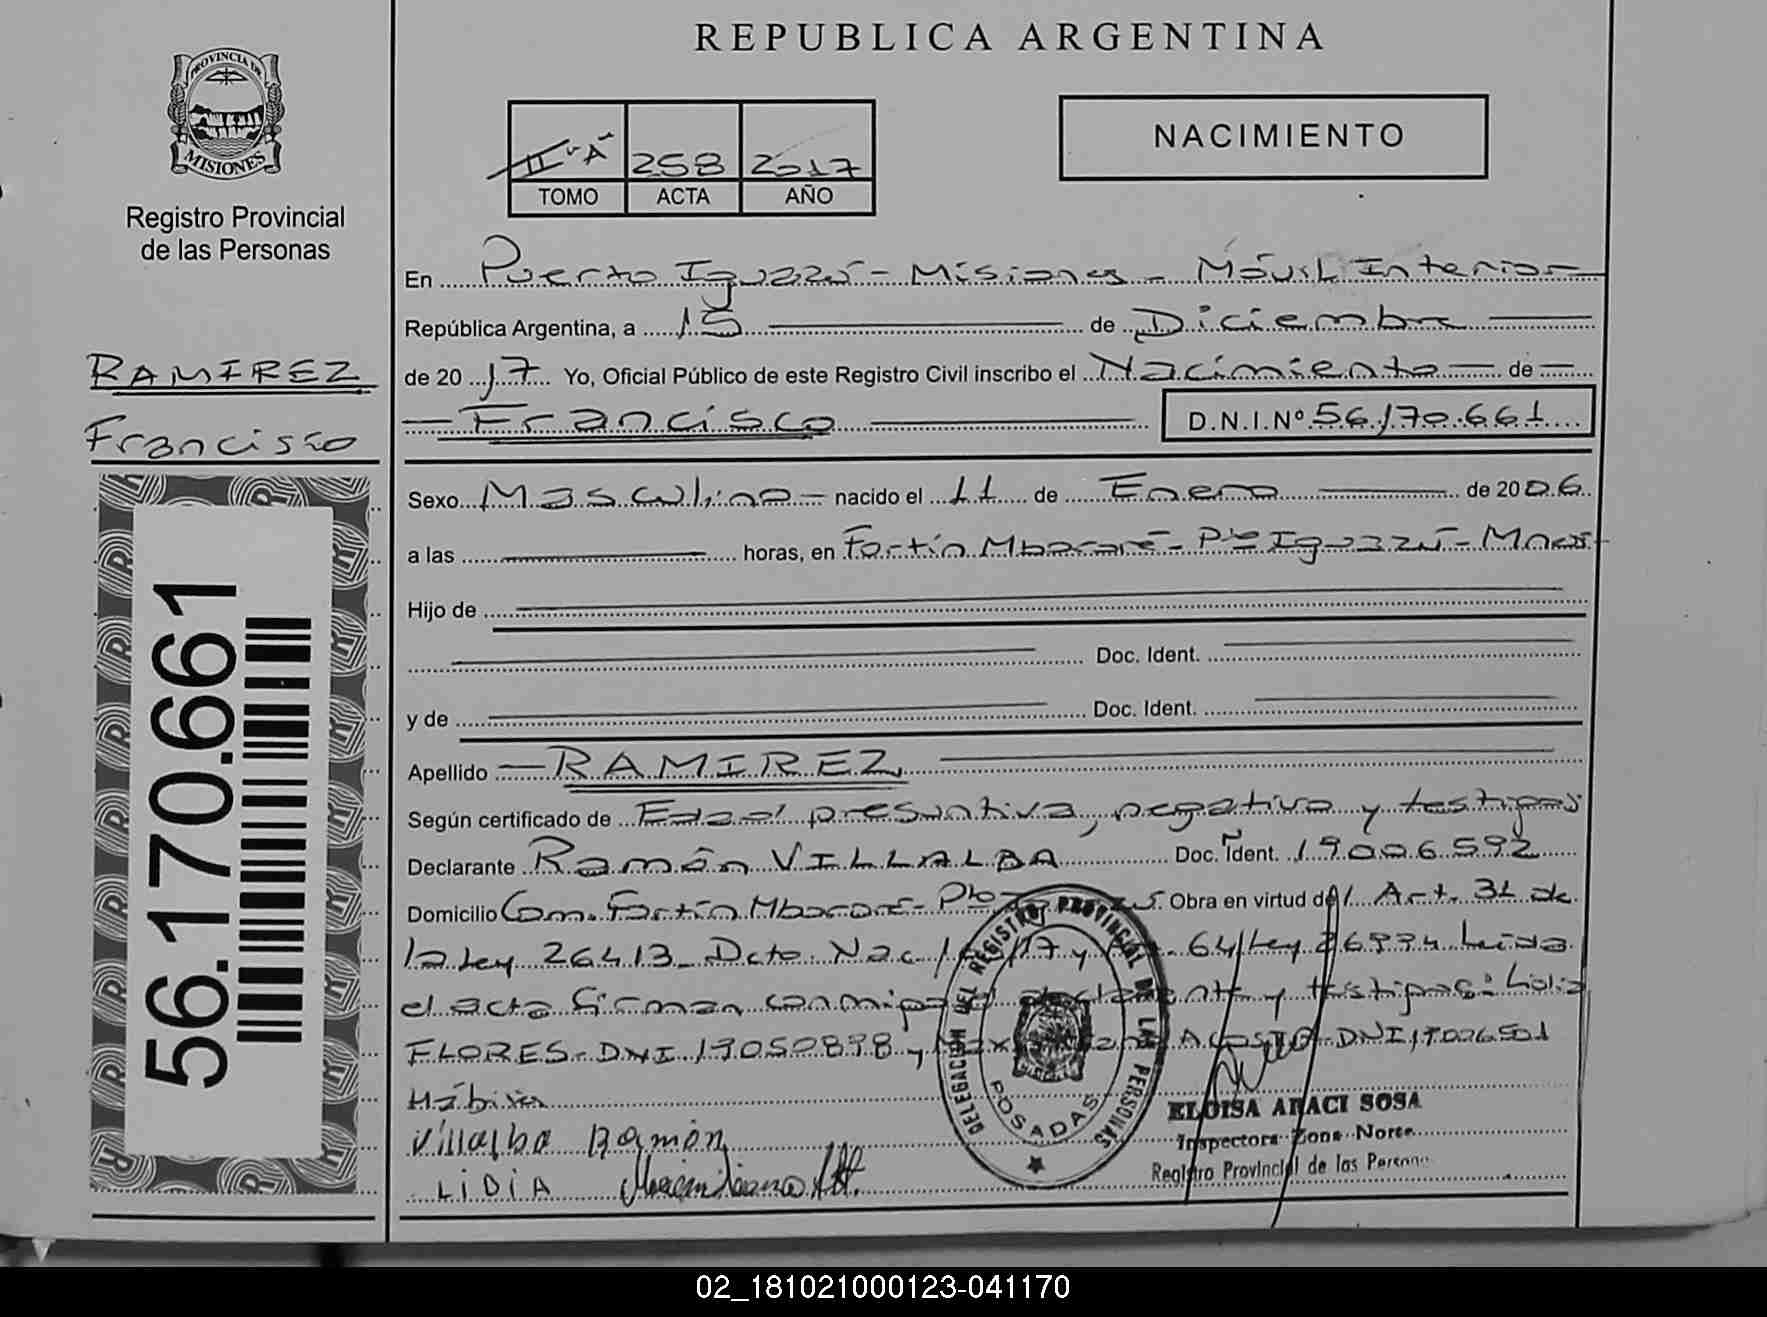 REPUBLICA ARGENTINA
PROVINCIA DE
MISIONES
Registro Provincial
de las Personas
NACIMIENTO
II-A 258 2017
TOMO ACTA AÑO
En Puerto Iguazú - Misiones - Móvil Interior
República Argentina, a 15 de Diciembre
RAMIREZ
Francisco
de 2017 Yo, Oficial Público de este Registro Civil inscribo el Nacimiento de
Francisco D.N.I.Nº 56.170.661
Sexo Masculino nacido el 11 de Enero de 2006
a las horas, en Fortín Mbororé - Pto Iguazú - Mnes
Hijo de
Doc. Ident.
y de Doc. Ident.
Apellido RAMIREZ
Según certificado de Edad presuntiva, negativo y testigos
Declarante Ramón VILLALBA Doc. Ident. 19006592
Domicilio Com. Fortín Mbororé - Pto Obra en virtud del Art. 31 de
la Ley 26413 - Dcto. Nac 17 y 64/Ley 26994 Leída
el acta firman conmigo el declarante y testigos: Lidia
FLORES - DNI 19050898 y ACOSTA DNI 19006501
Hábiles
Villalba Ramón
LIDIA
56.170.661
DELEGACION DEL REGISTRO PROVINCIAL DE LAS PERSONAS
POSADAS
ELOISA ARACI SOSA
Inspectora Zona Norte
Registro Provincial de las Personas
02_181021000123-041170